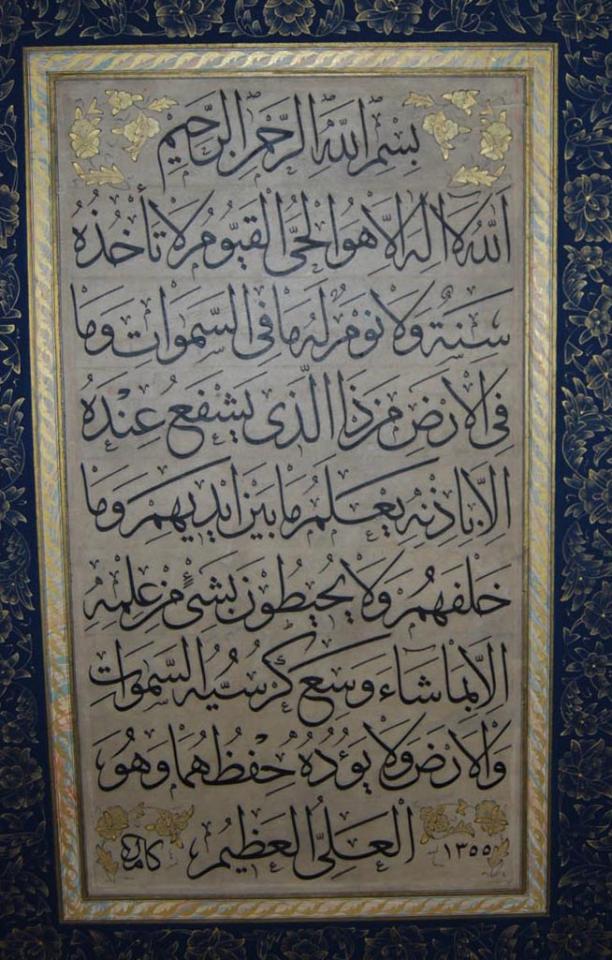 بِسْمِ اللهِ الرَّحْمٰنِ الرَّحِيْمِ
اَللهُ لَا اِلٰهَ اِلَّا هُوَ الْحَىُّ الْقَيُّوْمُ لَا تَأْخُذُهُ
سِنَةٌ وَلَا نَوْمٌ لَهُ مَا فِى السَّمٰوَاتِ وَمَا
فِى الْاَرْضِ مَنْ ذَا الَّذِى يَشْفَعُ عِنْدَهُ
اِلَّا بِاِذْنِهِ يَعْلَمُ مَا بَيْنَ اَيْدِيهِمْ وَمَا
خَلْفَهُمْ وَلَا يُحِيْطُوْنَ بِشَىْءٍ مِنْ عِلْمِهِ
اِلَّا بِمَا شَاءَ وَسِعَ كُرْسِيُّهُ السَّمٰوَاتِ
وَالْاَرْضَ وَلَا يَؤُدُهُ حِفْظُهُمَا وَهُوَ
الْعَلِىُّ الْعَظِيْمُ
١٣٥٥